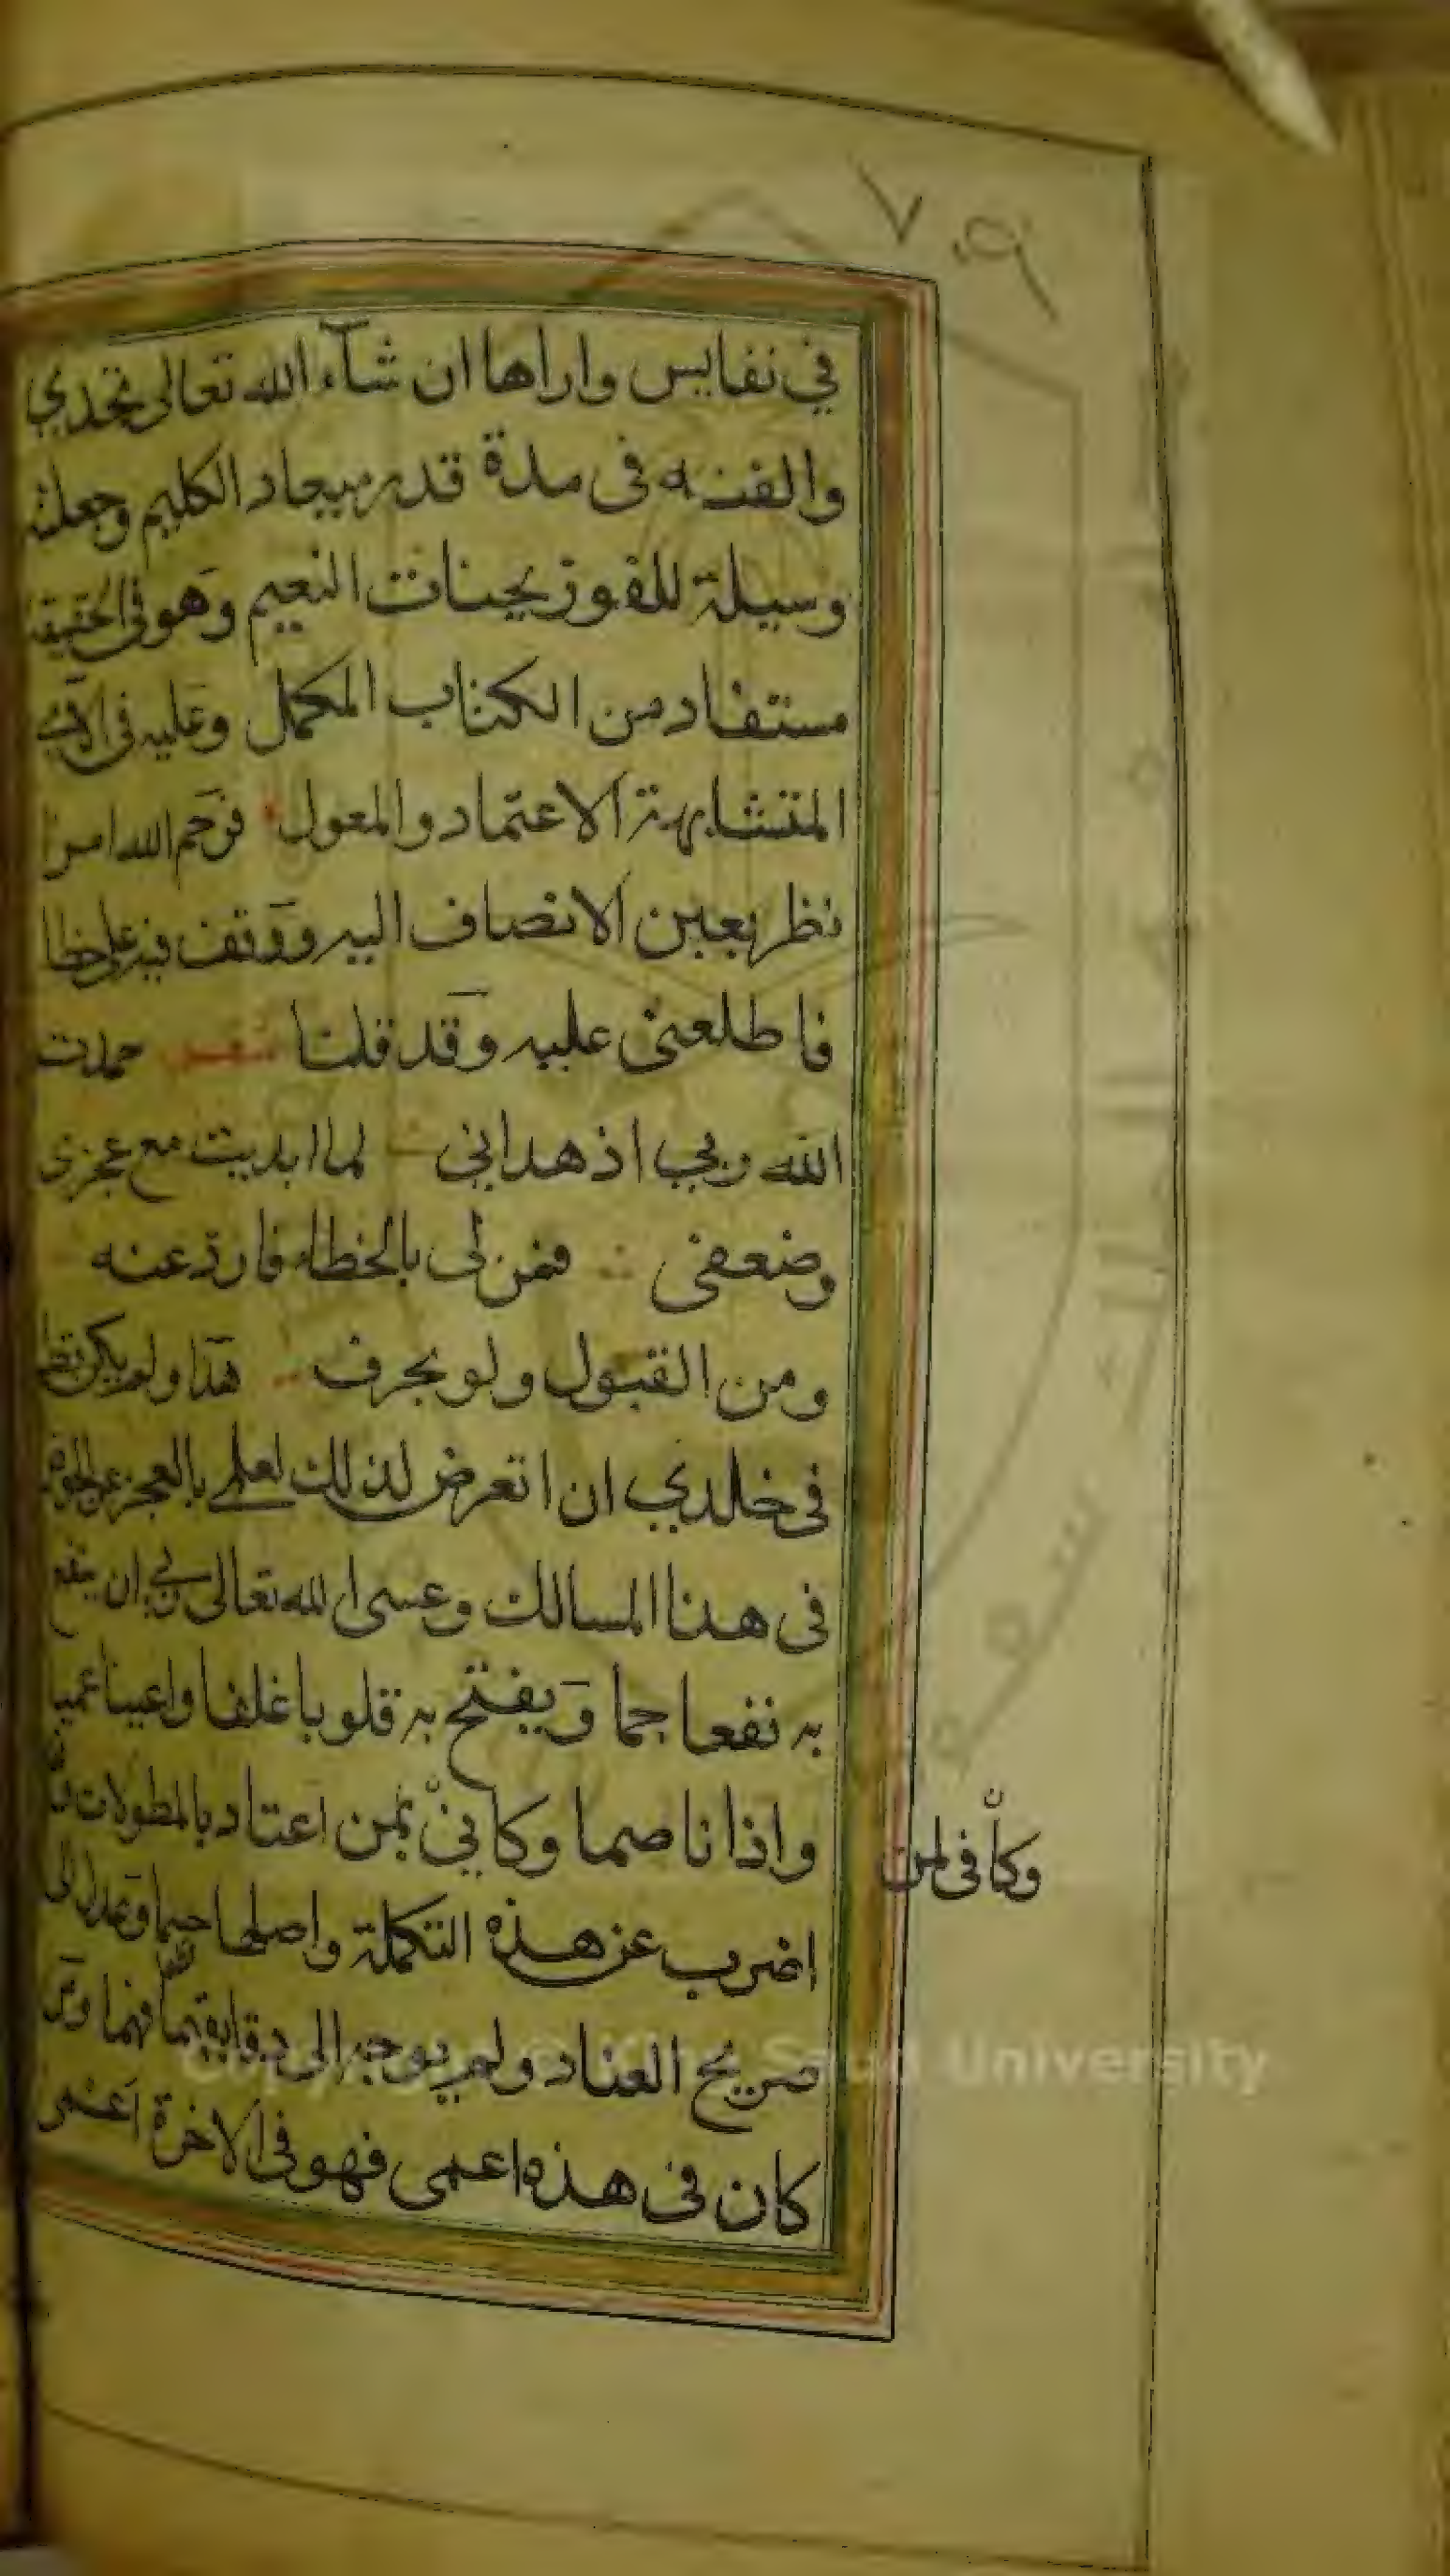 ٧٠٩
في نفايس واراها ان شآء الله تعالى تجدي
والفته فى مدة قدر ميعاد الكليم وجعلته
وسيلة للفوز بجنات النعيم وهو فى الحقيقة
مستفاد من الكتاب المكمل وعليه فى الآى
المتشابهة الاعتماد والمعول فرحم الله امرا
نظر بعين الانصاف اليه ووقف فيه على خطا
فاطلعنى عليه وقد قلنا شعر حمدت
الله ربي اذ هداني لما ابديت مع عجزى
وضعفى فمن لى بالخطاء فارد عنه
ومن القبول ولو بحرف هذا ولم يكن قط
فى خلدي ان اتعرض لذلك لعلمى بالعجز عن الخوض
فى هذا المسالك وعسى الله تعالى ان ينفع
به نفعا جما ويفتح به قلوبا غلفا واعينا عميا
واذانا صما وكاني بمن اعتاد بالمطولات وقد
اضرب عن هذه التكملة واصلها حسما وعدل الى
صريح العناد ولم يوجه الى دقايقهما فهما ومن
كان فى هذه اعمى فهو فى الاخرة اعمى
وكأنى لمن
Copyright © King Saud University